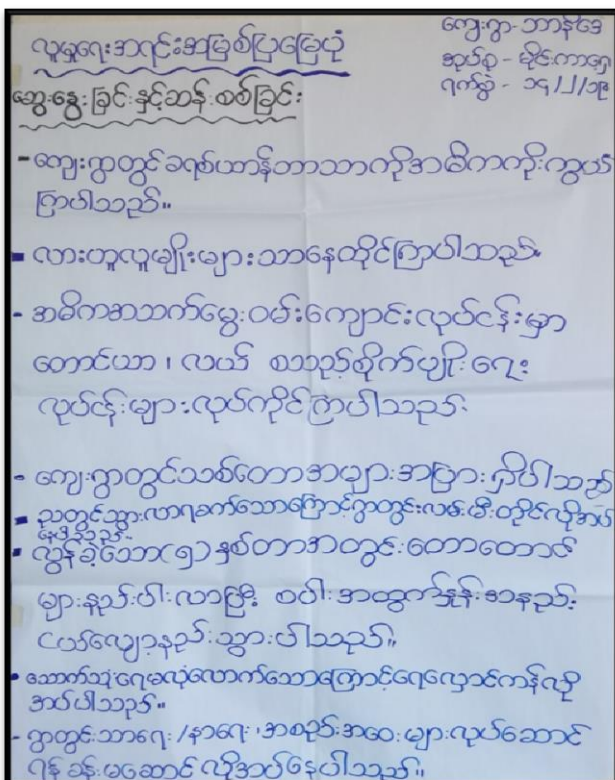 လူမှုရေးအရင်းအမြစ်ပြမြေပုံ
ကျေးရွာ - ဘာနံဒေ
အုပ်စု - မိုင်းကာရှေ
ရက်စွဲ - ၁၄/၂/၁၉
ဆွေးနွေးခြင်းနှင့်ဆန်းစစ်ခြင်း
- ကျေးရွာတွင်ခရစ်ယာန်ဘာသာကိုအဓိကကိုးကွယ်
ကြပါသည်။
- လားဟူလူမျိုးများသာနေထိုင်ကြပါသည်
- အဓိကအသက်မွေးဝမ်းကျောင်းလုပ်ငန်းမှာ
တောင်ယာ၊ လယ် စသည့်စိုက်ပျိုးရေး
လုပ်ငန်းများလုပ်ကိုင်ကြပါသည်
- ကျေးရွာတွင်သစ်တောအများအပြားရှိပါသည်
- ညတွင်သွားလာရခက်သောကြောင့်ရွာတွင်းလမ်းမီးတိုင်လိုအပ်
နေပါသည်
- လွန်ခဲ့သော(၅)နှစ်တာအတွင်းတောတောင်
များနည်းပါးလာပြီး စပါးအထွက်နှုန်းအနည်း
ငယ်လျော့နည်းသွားပါသည်။
- သောက်သုံးရေမလုံလောက်သောကြောင့်ရေလှောင်ကန်လို
အပ်ပါသည်။
- ရွာတွင်းသာရေး/နာရေး အစည်းအဝေးများလုပ်ဆောင်
ရန် ခန်းမဆောင် လိုအပ်နေပါသည်။